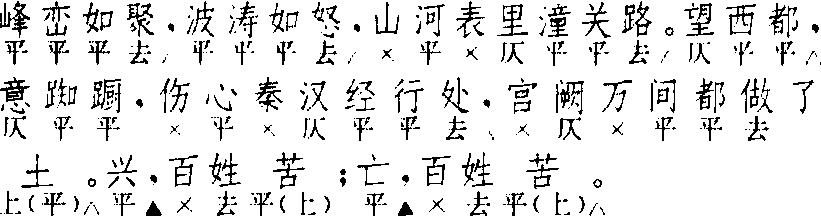 峰峦如聚，波涛如怒，山河表里潼关路。望西都，
平平平去，平平平去，×平×仄平平去，仄平平△
意踟蹰，伤心秦汉经行处，宫阙万间都做了
仄平平 ×平×仄平平去、×仄×平平去
土。兴，百姓 苦；亡，百姓 苦。
上(平)△平▲×去平(上) 平▲×去平(上)△